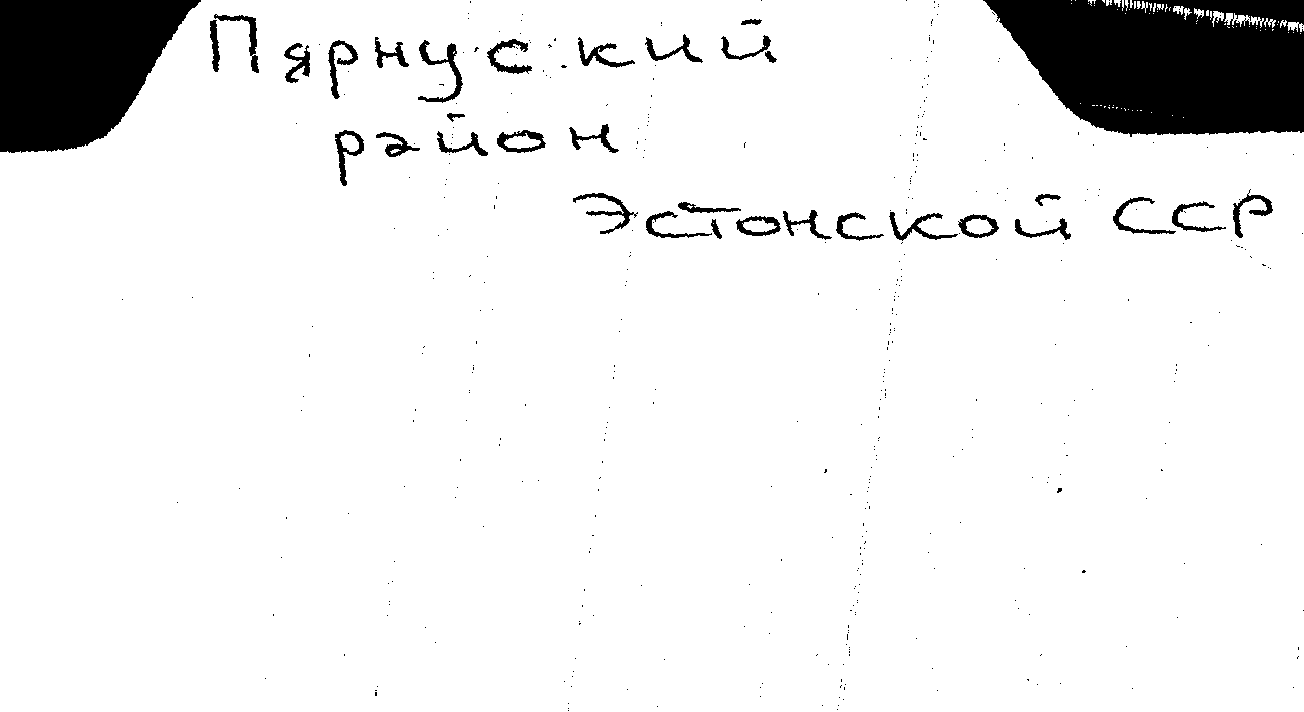 Пярнуский
район
Эстонской ССР